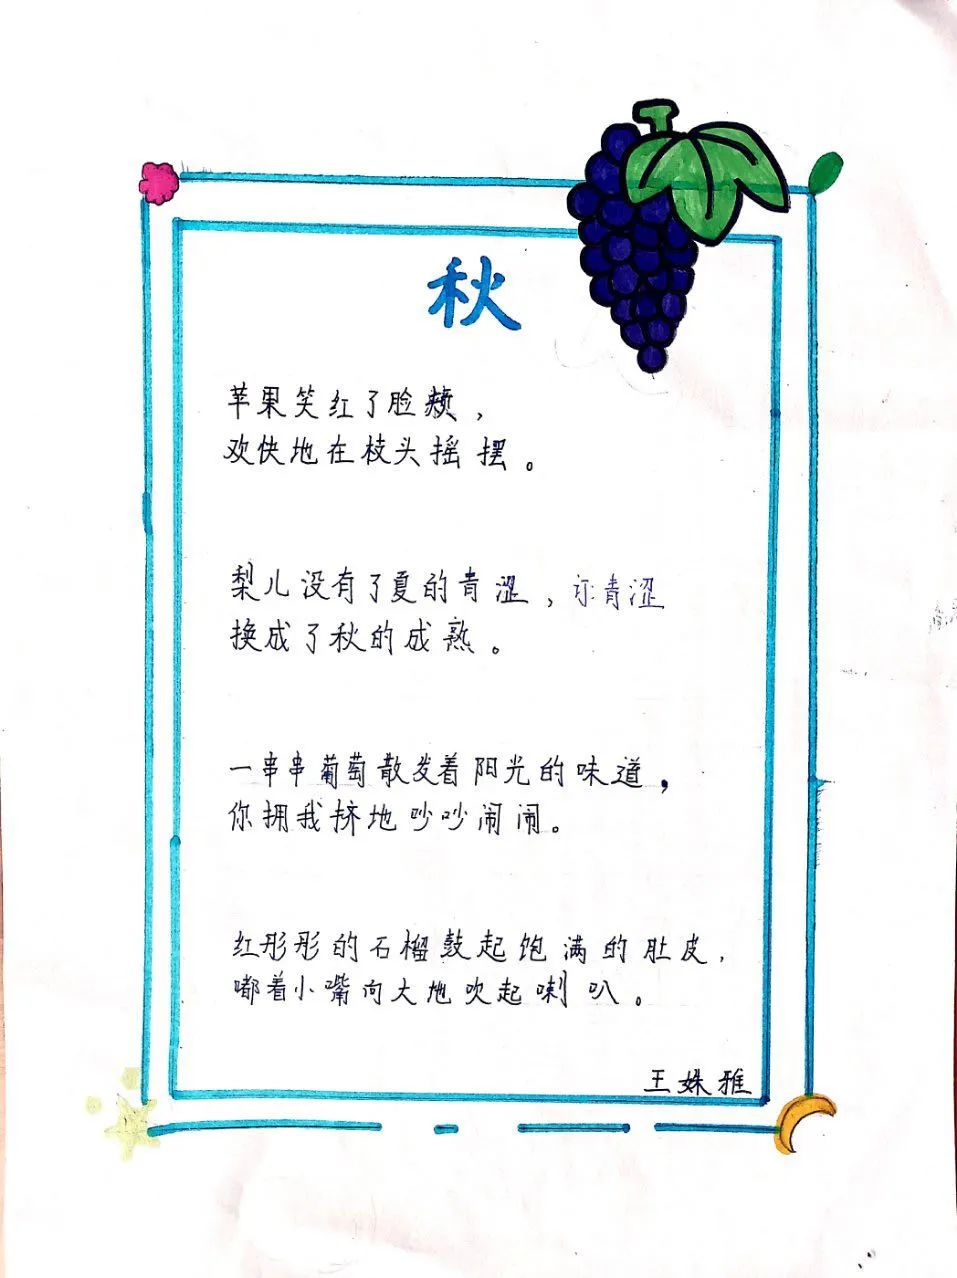 秋
苹果笑红了脸颊，
欢快地在枝头摇摆。
梨儿没有了夏的青涩，青涩
换成了秋的成熟。
一串串葡萄散发着阳光的味道，
你拥我挤地吵吵闹闹。
红彤彤的石榴鼓起饱满的肚皮，
嘟着小嘴向大地吹起喇叭。
王姝雅